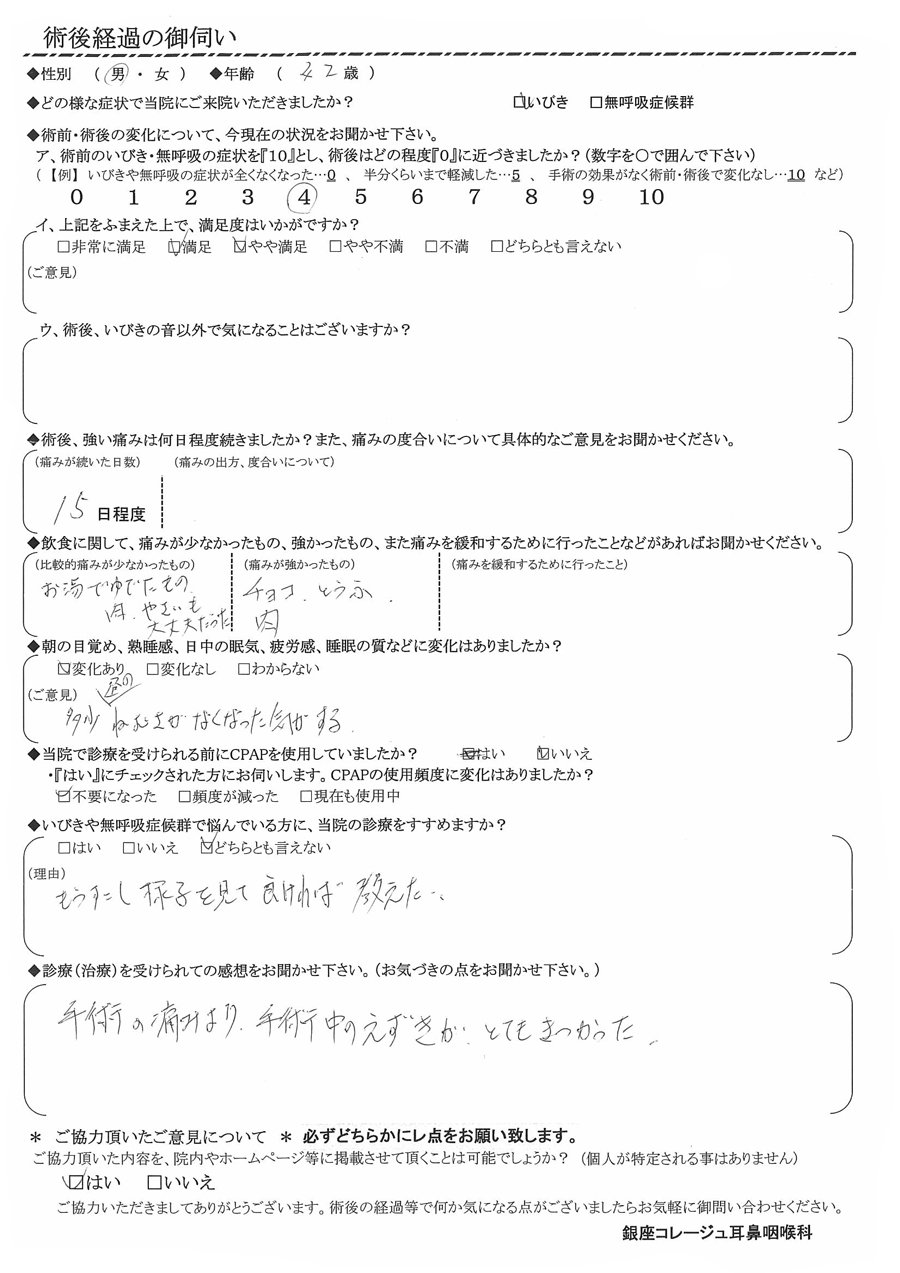 術後経過の御伺い
◆性別 (男・女) ◆年齢 (42歳)
◆どの様な症状で当院にご来院いただきましたか? ☑いびき □無呼吸症候群
◆術前・術後の変化について、今現在の状況をお聞かせ下さい。
ア、術前のいびき・無呼吸の症状を『10』とし、術後はどの程度『0』に近づきましたか?(数字を○で囲んで下さい)
(【例】いびきや無呼吸の症状が全くなくなった…0 、 半分くらいまで軽減した…5 、 手術の効果がなく術前・術後で変化なし…10 など)
0 1 2 3 ④ 5 6 7 8 9 10
イ、上記をふまえた上で、満足度はいかがですか?
□非常に満足 ☑満足 ☑やや満足 □やや不満 □不満 □どちらとも言えない
(ご意見)
ウ、術後、いびきの音以外で気になることはございますか?
◆術後、強い痛みは何日程度続きましたか?また、痛みの度合いについて具体的なご意見をお聞かせください。
(痛みが続いた日数) (痛みの出方、度合いについて)
15 日程度
◆飲食に関して、痛みが少なかったもの、強かったもの、また痛みを緩和するために行ったことなどがあればお聞かせください。
(比較的痛みが少なかったもの) (痛みが強かったもの) (痛みを緩和するために行ったこと)
お湯でゆでたもの チョコ、とうふ、
肉、やさいも 肉
大丈夫だった
◆朝の目覚め、熟睡感、日中の眠気、疲労感、睡眠の質などに変化はありましたか?
☑変化あり □変化なし □わからない
(ご意見) 昼の
多少ねむさがなくなった気がする。
◆当院で診療を受けられる前にCPAPを使用していましたか? □はい ☑いいえ
・『はい』にチェックされた方にお伺いします。CPAPの使用頻度に変化はありましたか?
☑不要になった □頻度が減った □現在も使用中
◆いびきや無呼吸症候群で悩んでいる方に、当院の診療をすすめますか?
□はい □いいえ ☑どちらとも言えない
(理由)
もうすこし様子を見て良ければ教えたい。
◆診療(治療)を受けられての感想をお聞かせ下さい。(お気づきの点をお聞かせ下さい。)
手術の痛みより、手術中のえずきが、とてもきつかった。
＊ ご協力頂いたご意見について ＊ 必ずどちらかにレ点をお願い致します。
ご協力頂いた内容を、院内やホームページ等に掲載させて頂くことは可能でしょうか? (個人が特定される事はありません)
☑はい □いいえ
ご協力いただきましてありがとうございます。術後の経過等で何か気になる点がございましたらお気軽に御問い合わせください。
銀座コレージュ耳鼻咽喉科